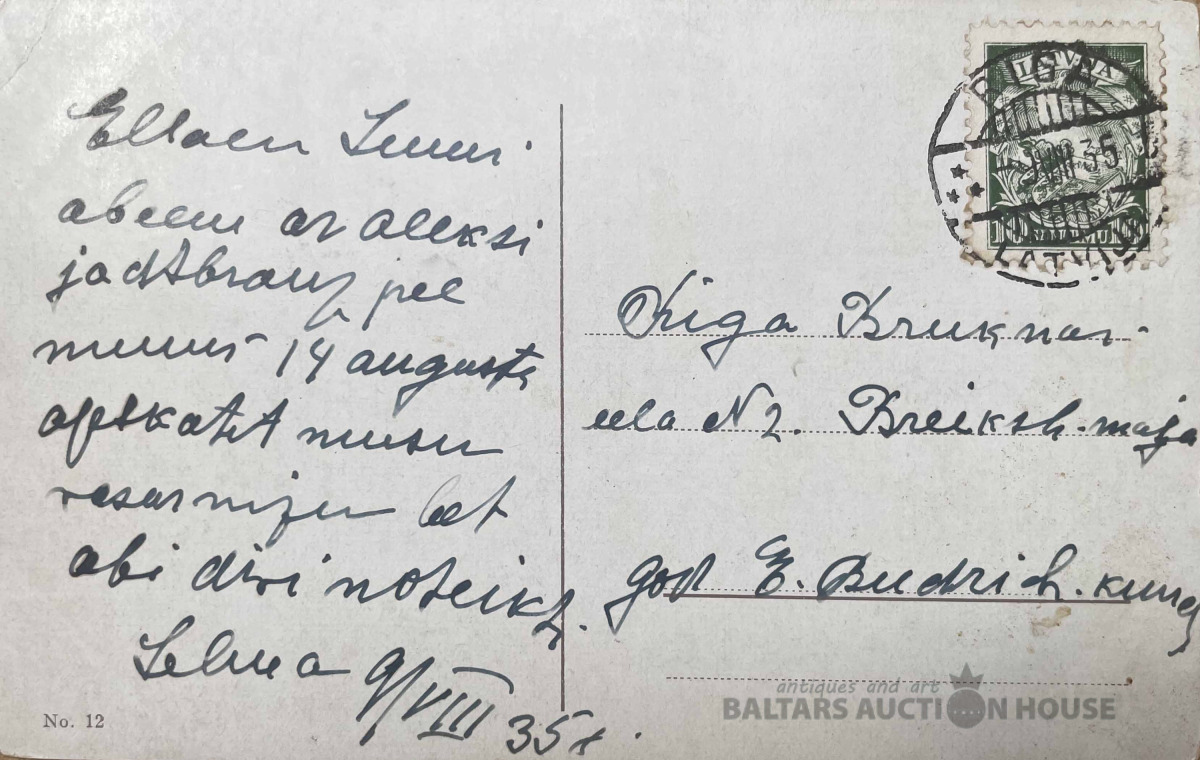 abeem ar aleksi
jadtbrauz pee
mums 14 augusta
apskatit musu
vasarniju bet
abi divi noteikt.
Selma 9/VIII 35
No. 12
LATVIJA
RIGA
35
LATVIJA
Riga Bruknar-
eela N 2. Breiksh. maja
god E. Budrich. kung
antiques and art
BALTARS AUCTION HOUSE